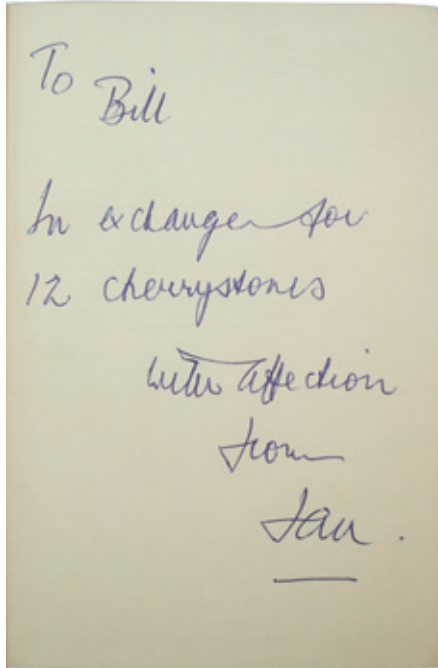 To
Bill
In exchange for
12 cherrystones
with affection
from
Ian.